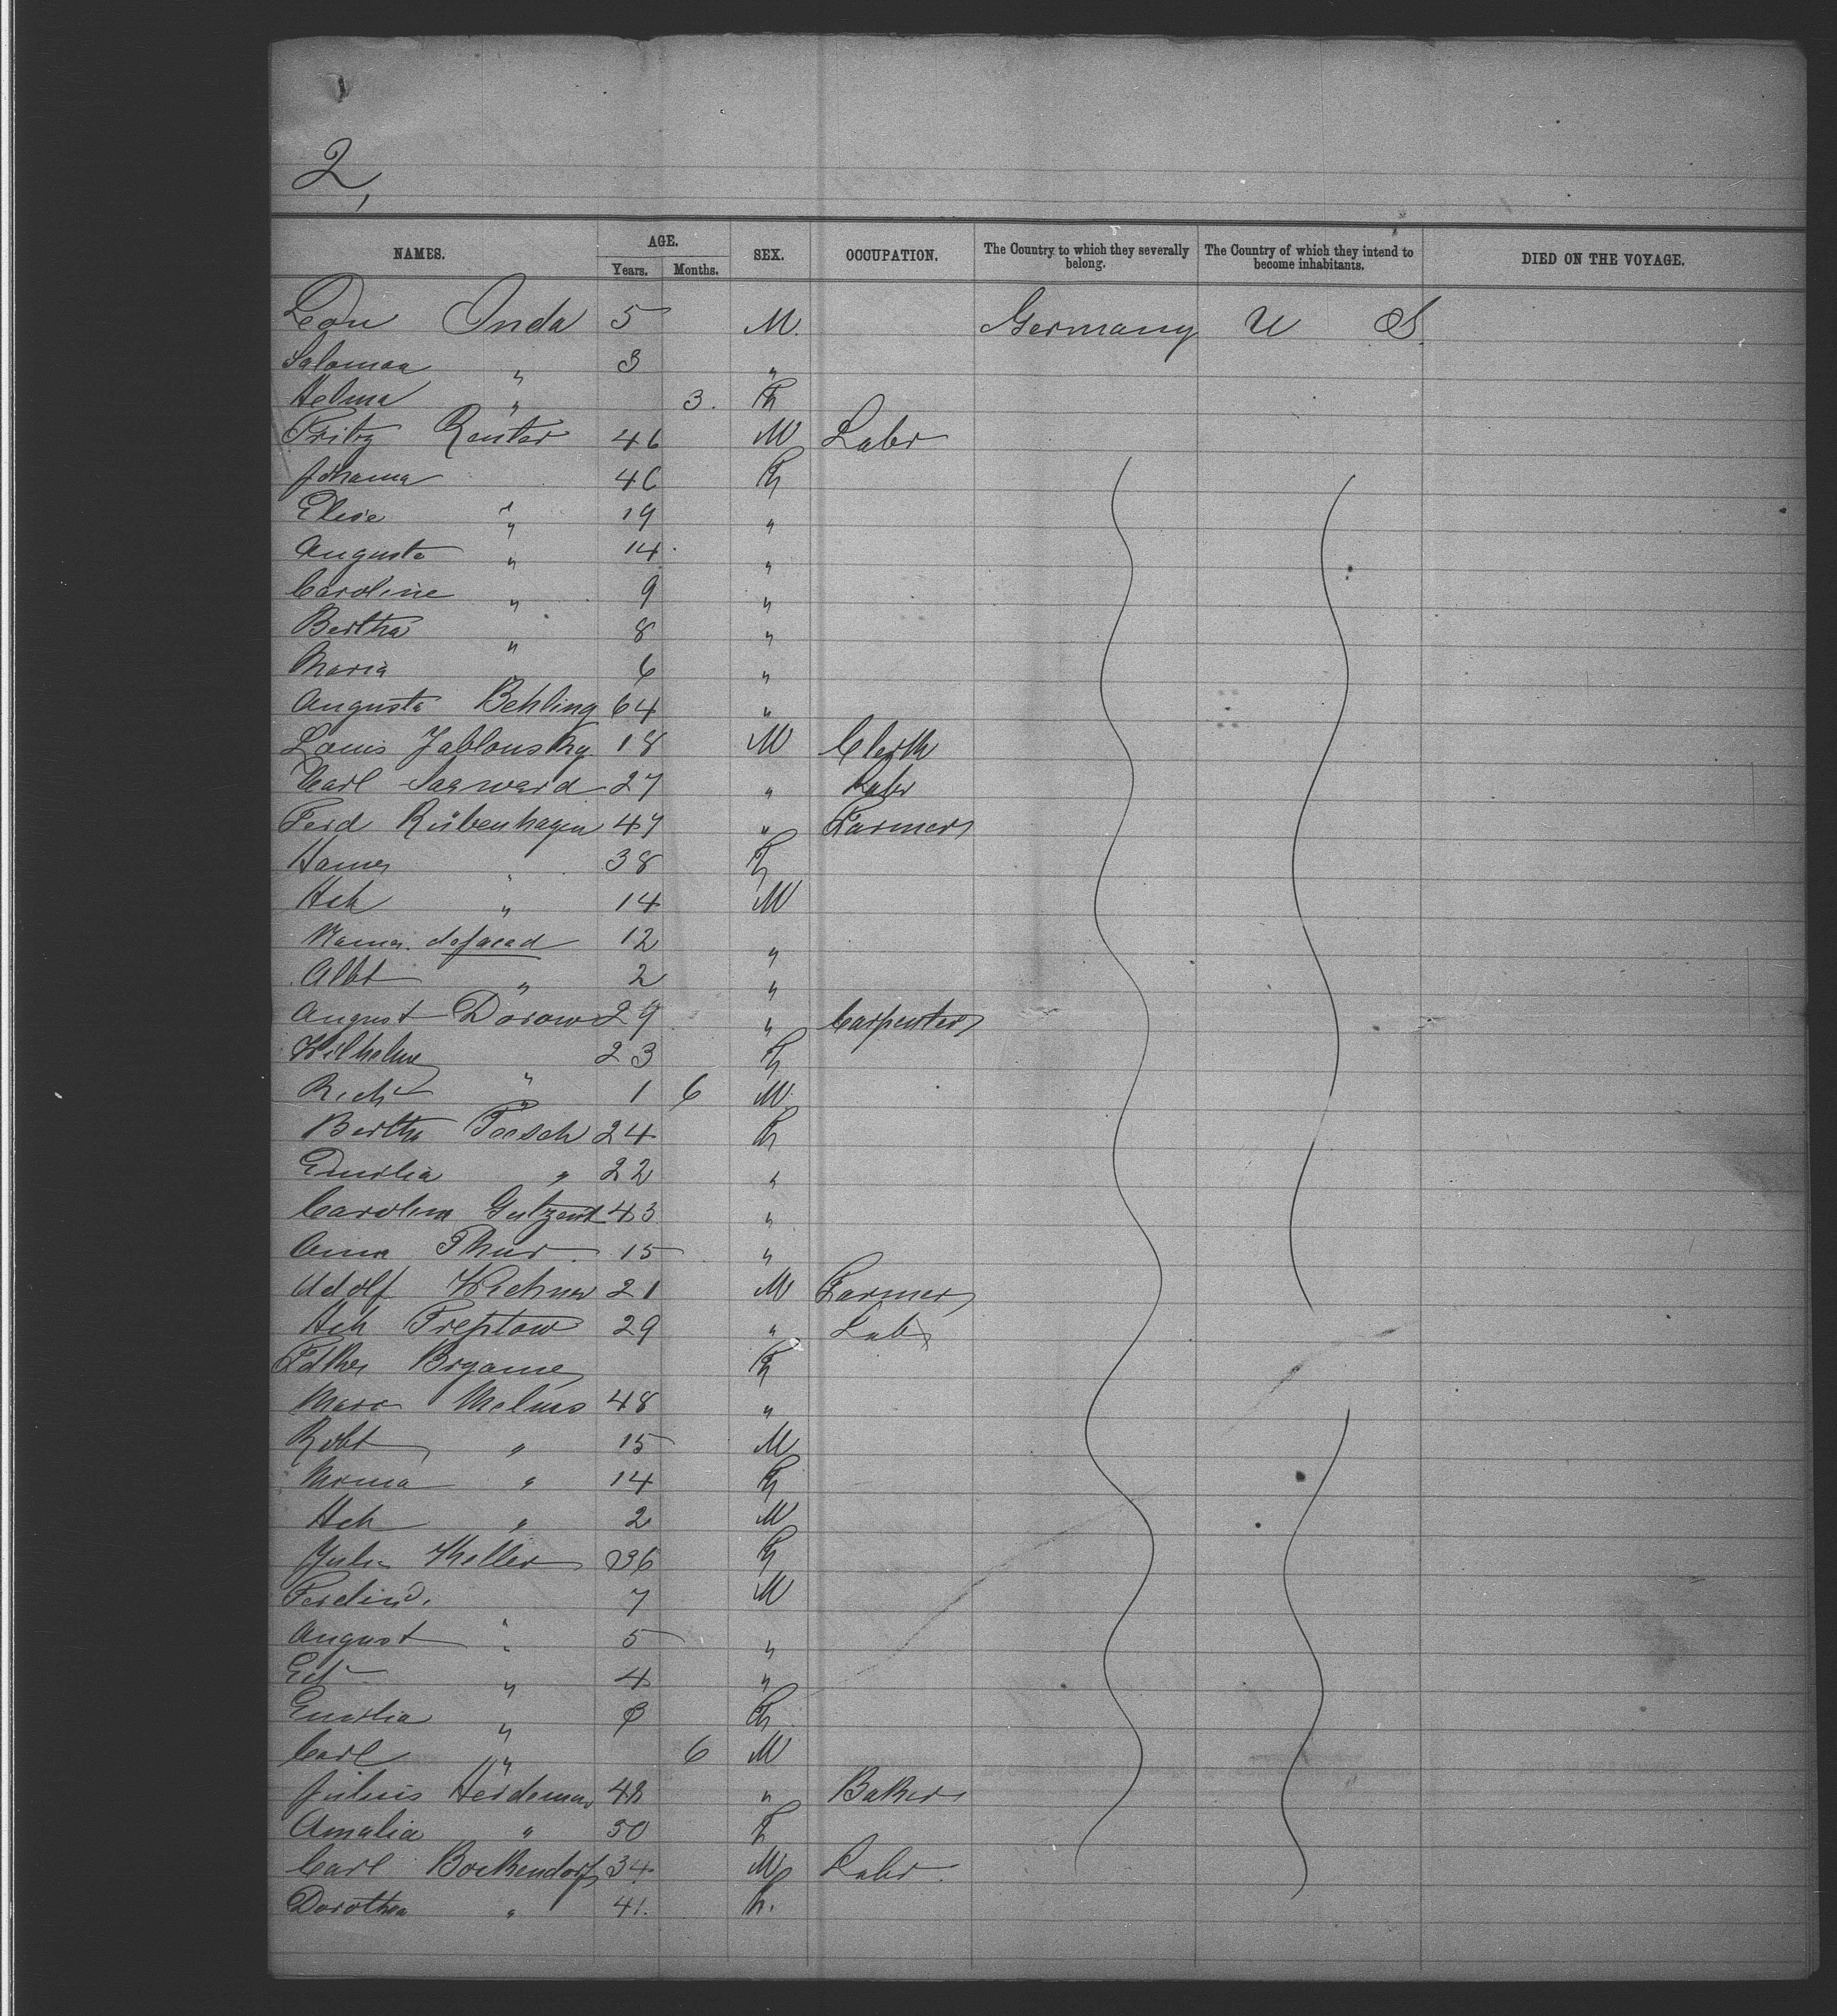 2,
NAMES. AGE. Years. Months. SEX. OCCUPATION. The Country to which they severally belong. The Country of which they intend to become inhabitants. DIED ON THE VOYAGE.
Leon Onda 5 M. Germany U S.
Salomon " 3 "
Helma " 3. F
Fritz Reuter 46 M Labr
Johanna 46 F
Elise " 19 "
Augusta " 14 "
Caroline " 9 "
Bertha " 8 "
Maria 6 "
Augusta Behling 64 "
Louis Jablonsky 18 M Clerk
Carl Saaward 27 " Labr
Ferd Rübenhagen 47 " Farmer
38 F
Hch " 14 M
Name defaced 12 "
Albt " 2 "
August Dorow 29 " Carpenter
Wilhelm 23 F
Rich " 1 6 M
Bertha Poesch 24 F
Emilia " 22 "
Carolina Gutzeit 43 "
Anna Thur 15 "
Adolf 21 M Farmer
Hch Treptow 29 " Labr
F
48 "
Robt " 15 M
" 14 F
Hch " 2 M
Julia Keller 36 F
Ferdind. 7 M
August " 5 "
Ed " 4 "
Emilia " 3 F
Carl " 6 M
Julius Heideman 48 " Baker
Amalia " 50 F
Carl Borkendorf 34 M Labr
Dorothea " 41. F.